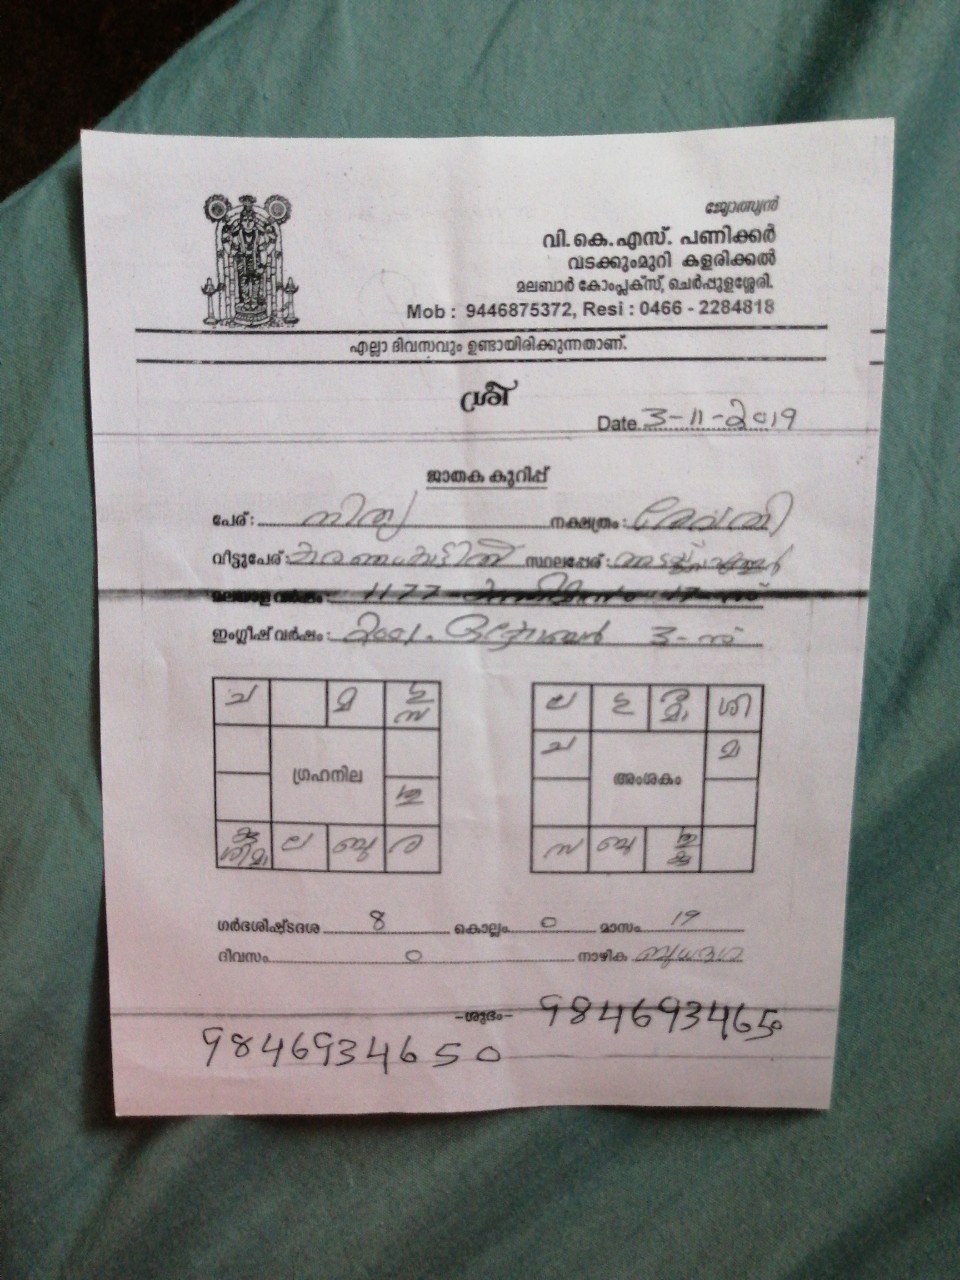 ജ്യോത്സ്യൻ
വി.കെ.എസ്. പണിക്കർ
വടക്കുംമുറി കളരിക്കൽ
മലബാർ കോംപ്ലക്സ്, ചെർപ്പുളശ്ശേരി.
Mob : 9446875372, Resi : 0466 - 2284818
എല്ലാ ദിവസവും ഉണ്ടായിരിക്കുന്നതാണ്.
ശ്രീ
Date 3-11-2019
ജാതക കുറിപ്പ്
പേര് : നിത്യ നക്ഷത്രം : രേവതി
വീട്ടുപേര് : സ്ഥലപ്പേര് :
മലയാള വർഷം : 1177 കന്നിമാസം 17-ന്
ഇംഗ്ലീഷ് വർഷം : 2001 ഒക്ടോബർ 3-ന്
ച മ ഗു സ
ഗ്രഹനില
ല ബു ര
ല ശി
ച മ
അംശകം
സ ബു
ഗർഭശിഷ്ടദശ 8 കൊല്ലം 0 മാസം 19
ദിവസം 0 നാഴിക ബുധദശ
-ശുഭം- 9846934650
9846934650